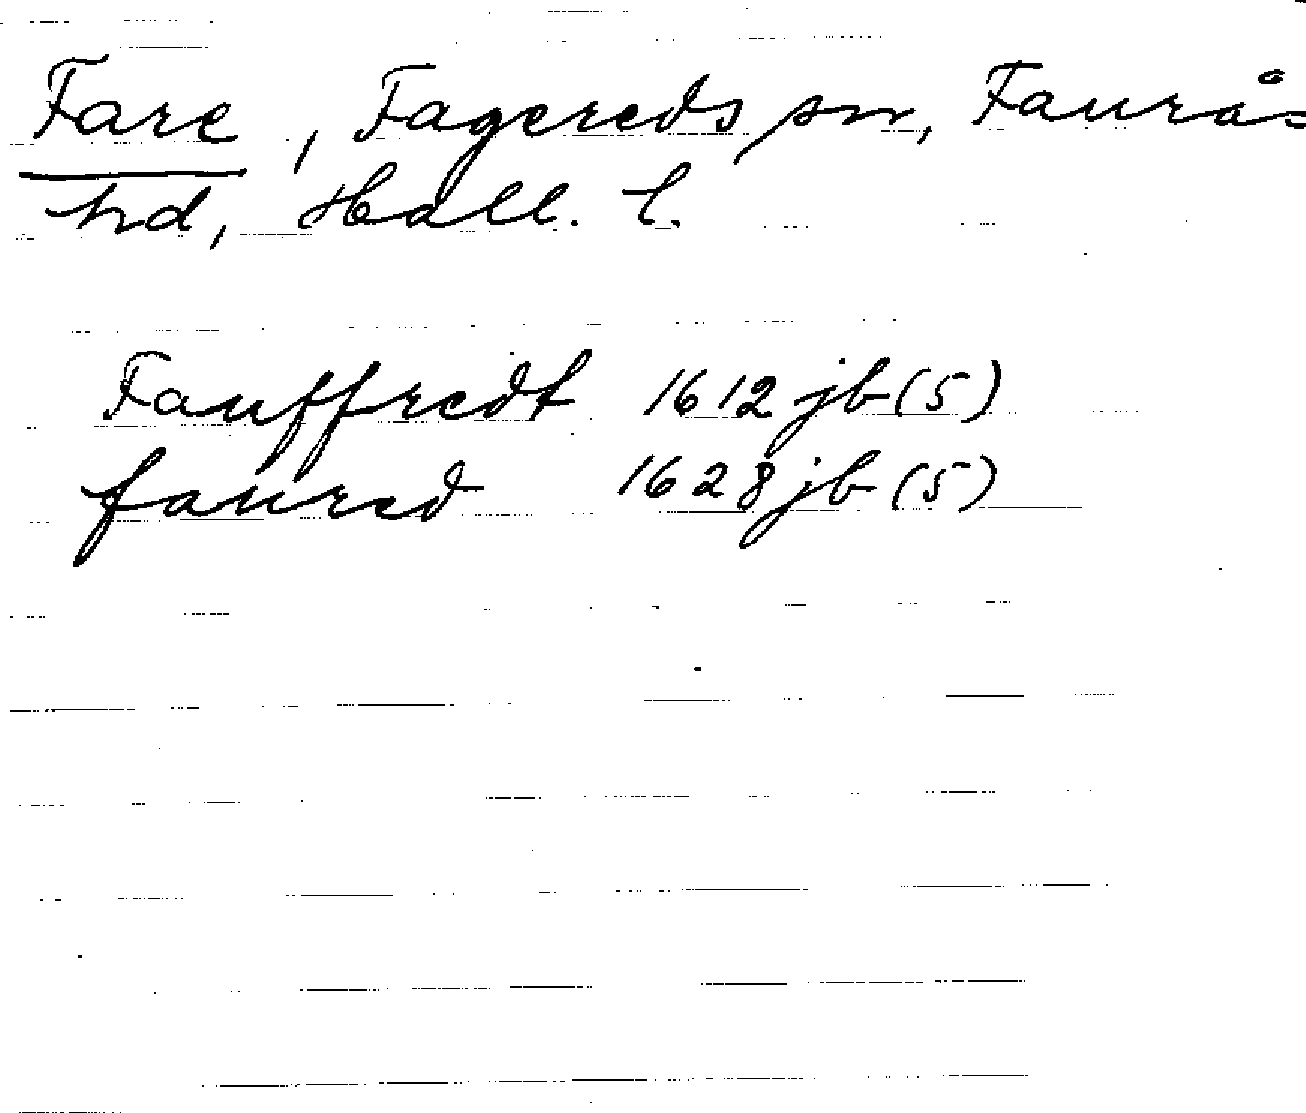 Fare, Fagereds sn, Faurås
hd, Hall. l.
Fauffredt 1612 jb (5)
faured 1628 jb (5)